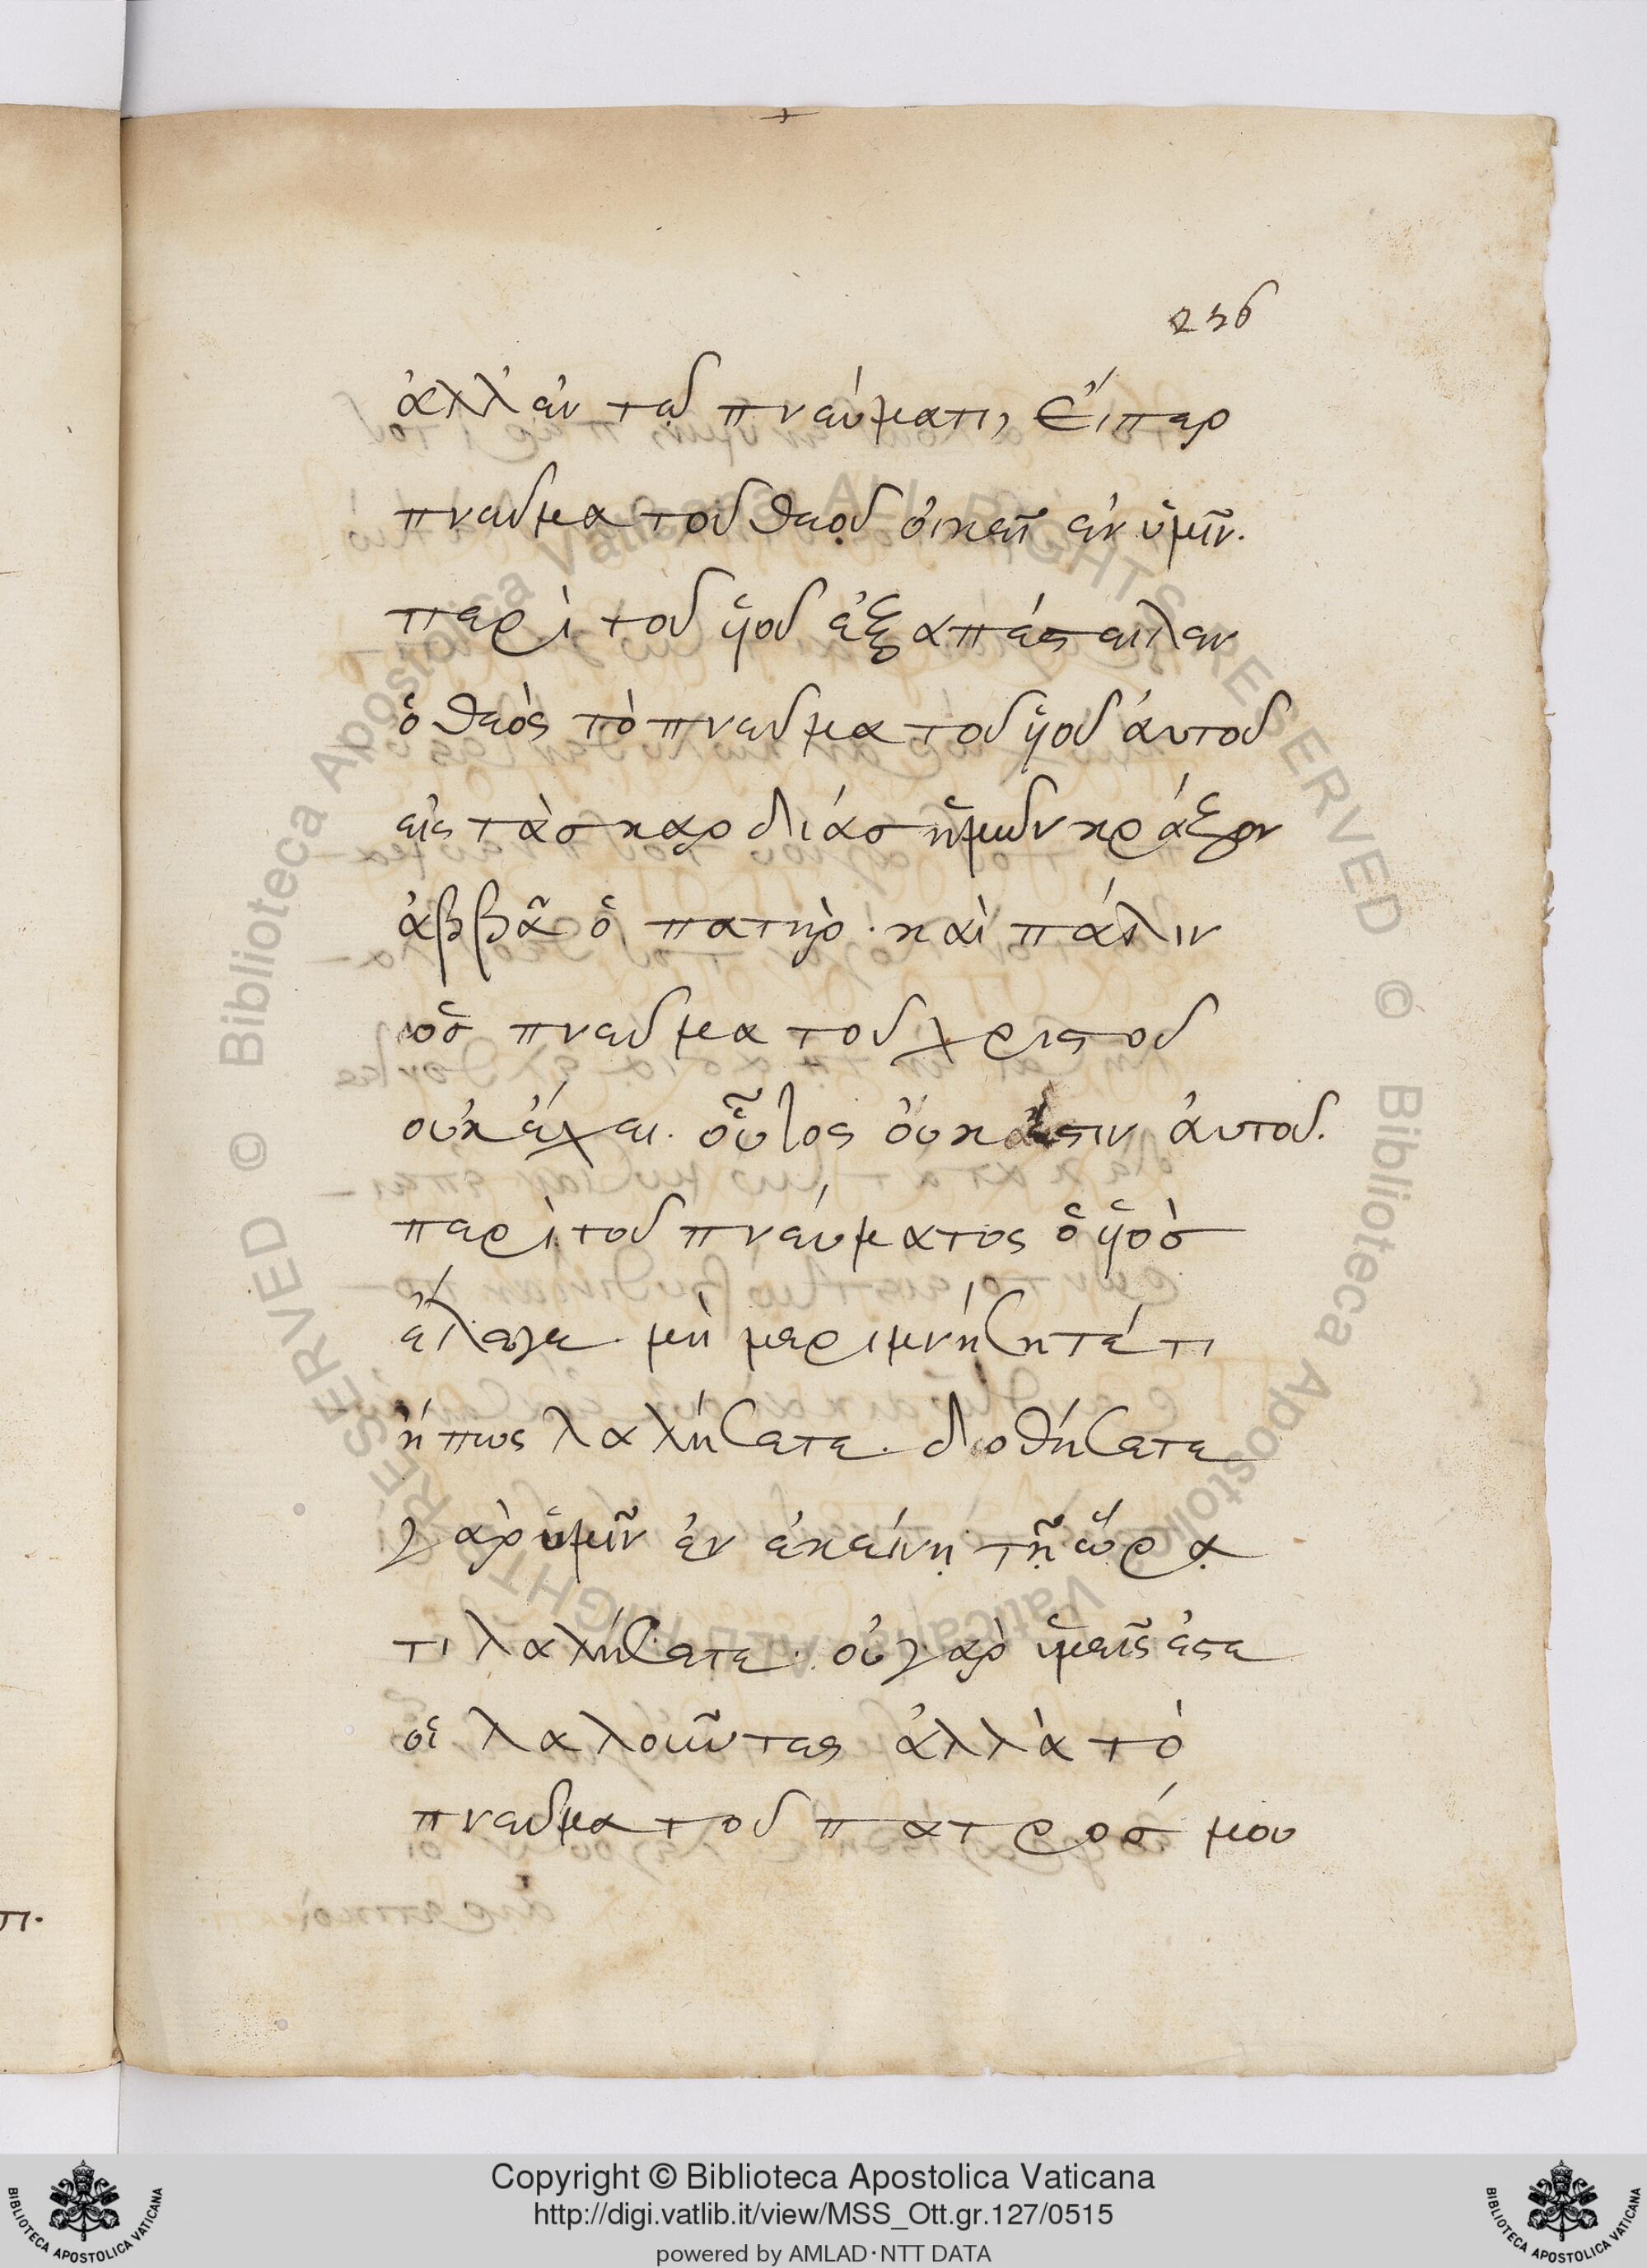 256
ἀλλ' ἐν τῷ πνεύματι, Εἴπερ
πνεῦμα τοῦ θεοῦ οἰκεῖ ἐν ὑμῖν.
περὶ τοῦ ὑοῦ ἐξαπέστειλεν
ὁ θεὸς τὸ πνεῦμα τοῦ ὑοῦ ἀυτοῦ
εἰς τὰσ καρδιάσ ἡμῶν κράξον
ἀββᾶ ὁ πατηρ. καὶ πάλιν
ὁσ πνεῦμα τοῦ χριστοῦ
οὐκ ἔχει. οὗτος ὀυκ ἔστιν ἀυτοῦ.
περὶ τοῦ πνεύματος ὁ ὑὸσ
ἔλεγε. μὴ μεριμνήσητέ τι
ἤ πως λαλήσετε. διοθήσετε
γὰρ ὑμῖν ἐν ἐκείνῃ τῇ ὥρᾳ
τι λαλήσετε. οὐ γὰρ ὑμεῖς ἐστε
οἱ λαλοῦντες ἀλλὰ τὸ
πνεῦμα τοῦ πατρόσ μου
τι.
Copyright © Biblioteca Apostolica Vaticana
http://digi.vatlib.it/view/MSS_Ott.gr.127/0515
powered by AMLAD·NTT DATA
BIBLIOTECA APOSTOLICA VATICANA
BIBLIOTECA APOSTOLICA VATICANA
© Biblioteca Apostolica Vaticana ALL RIGHTS RESERVED
© Biblioteca Apostolica Vaticana ALL RIGHTS RESERVED